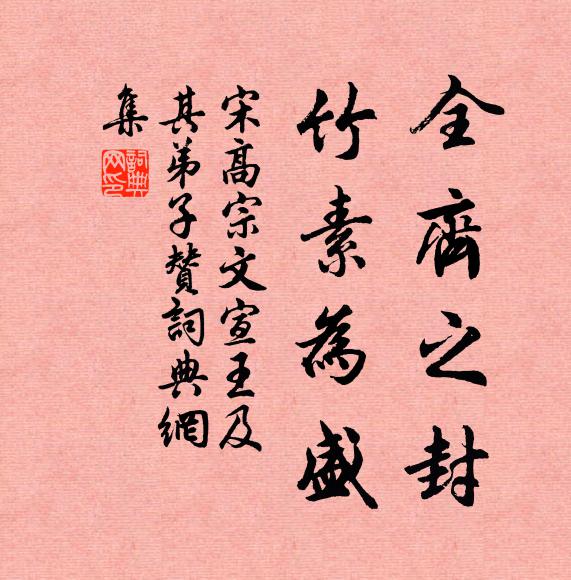 全齊之封
竹素為盛
宋高宗文宣王及
其弟子贊詞典網
集
詞典
网印